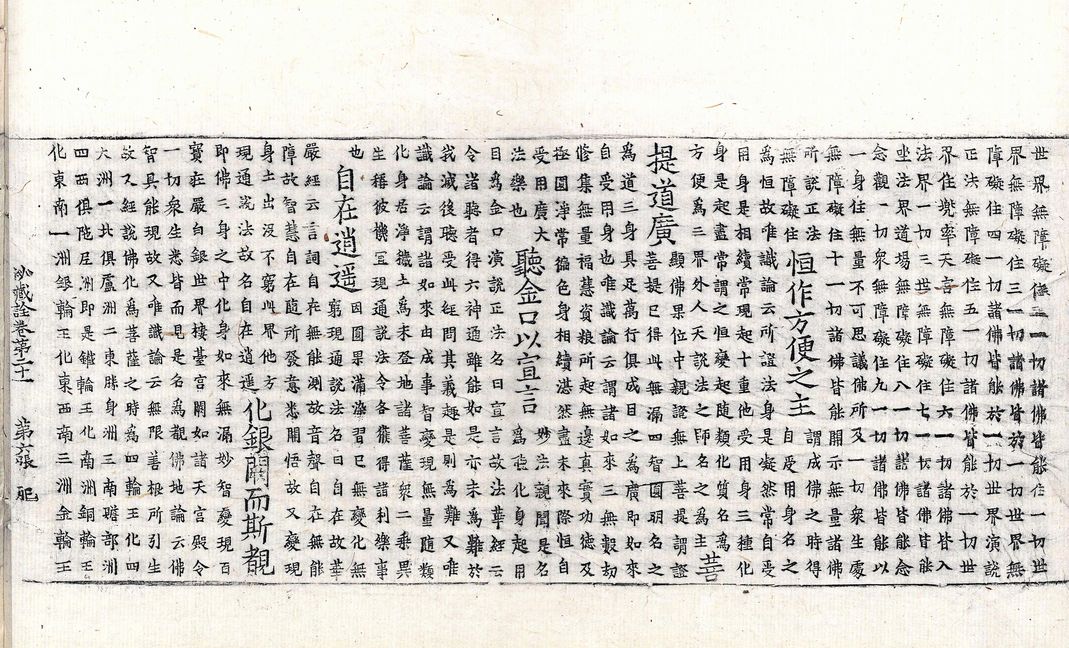 世界無障礙住二一切諸佛皆能住一切世
界無障礙住三一切諸佛皆於一切世界無
障礙住四一切諸佛皆能於一切世界演說
正法無障礙住五一切諸佛皆能於一切世
界住兜率天宮無障礙住六一切諸佛皆入
法界一切三世無障礙住七一切諸佛皆能
坐法界道場無障礙住八一切諸佛皆能念
念觀一切衆無障礙住九一切諸佛皆能以
一身住無量不可思議佛所及一切衆生處
無障礙住十一切諸佛皆能開示無量諸佛
所說正法
無障礙住
恒作方便之主
謂成佛之時得
自受用身名之
為恒故唯識論云所證法身是凝然常自受
用身是相續常現起十重他受用身三種化
身是起盡常謂之恒變起隨類化質名為
方便為三界外人天說法之師名之為主
菩
提道廣
顯佛果位中親證無上菩提謂證
菩提已得此無漏四智圓明名之
為道三身具是萬行俱成日之為廣即如來
自受用身也唯識論云謂諸如來三無數劫
修集無量福慧資糧所起無邊真實功德及
極圓淨常徧色身相續湛然盡未來際恒自
受用廣大
法樂也
聽金口以宣言
妙法親聞是名
為應化身起用
目為金口演說正法名曰宣言故法華經云
令諸聽者得六神通雖能如是亦未為難於
我滅後聽受此經問其義趣是則為難又唯
識論云謂諸如來由成事智變現無量隨類
化身居淨穢土為未登地諸菩薩衆二乘異
生稱彼機宜現通說法令各獲得諸利樂事
也
自在逍遙
因圓果滿藻習已無變化無
窮現通說法名曰自在故華
嚴經云言詞自在無能測故音聲自在無能
障故智慧自在隨所發意悉開悟故又變現
身土出沒不窮此界他方
現通說法故名自在逍遙
化銀闕而斯覩
即佛三身之中化身如來無漏妙智變現百
寶莊嚴白銀世界樓臺宮闕如諸天宮殿令
一切衆生悉皆而見是名為觀佛地論云佛
智具能現故又唯識論云無限善根所引生
故又經說佛化為菩薩之時為四輪王化四
大洲一北俱盧洲二東勝身洲三南贍部洲
四西俱陁尼洲即是鐵輪王化南洲銅輪王
化東南二洲銀輪王化東西南三洲金輪王
祕藏詮卷第二十一 第六張 杷